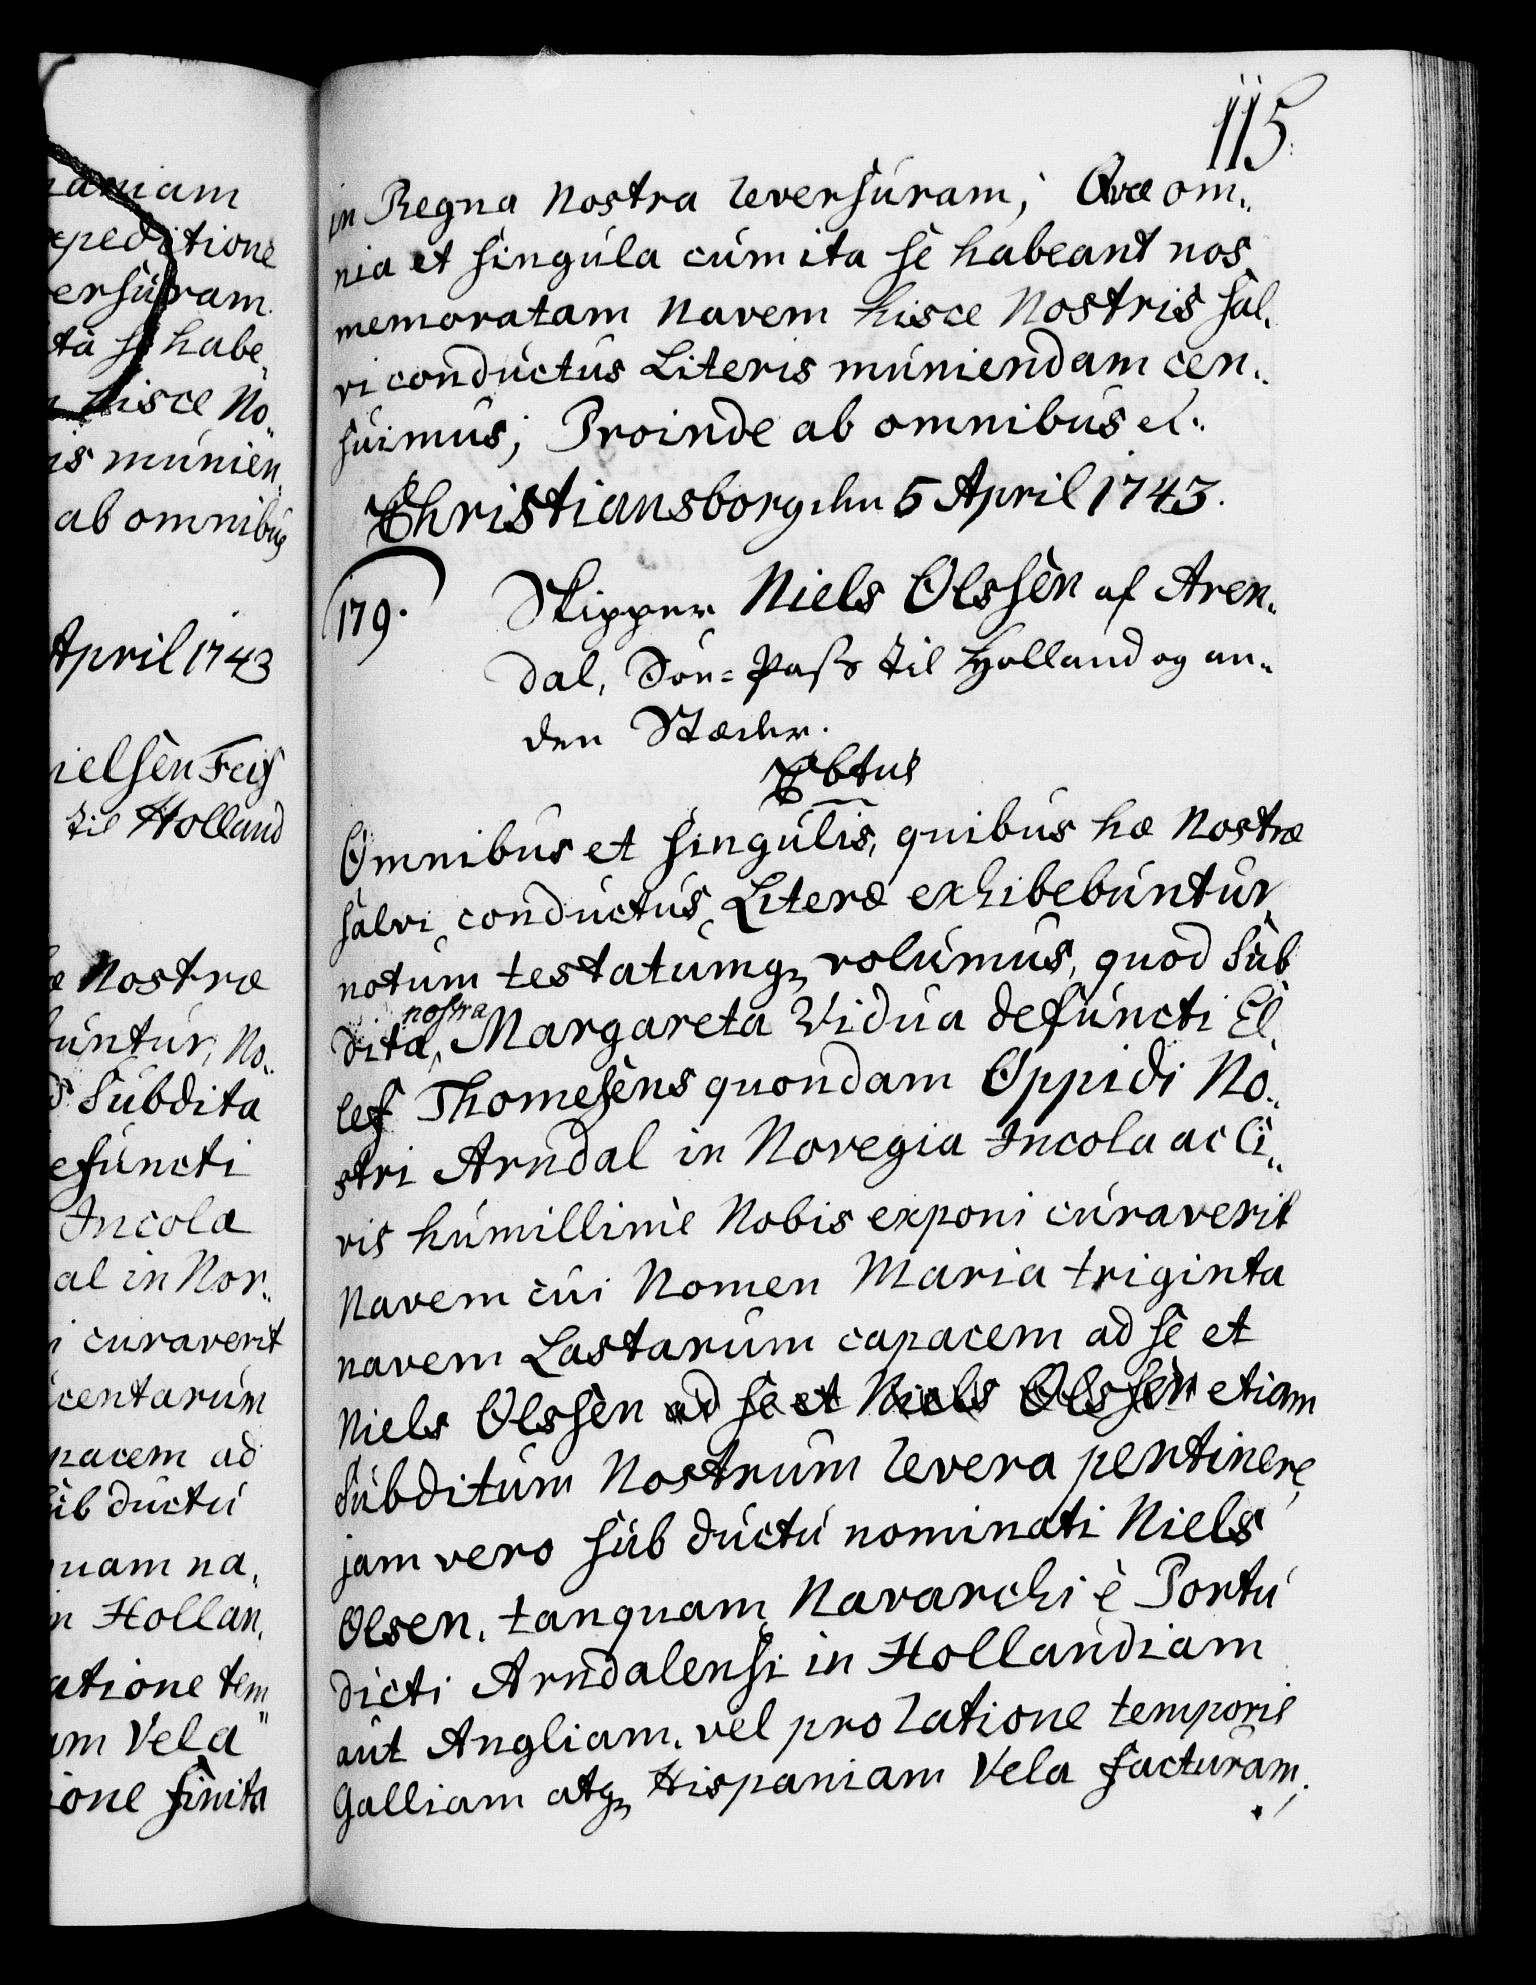 naniam
xpeditione
versuram.
ita se habe„
n hisce No„
is munien„
ab omnibus
April 1743
ielsen Feis
til Holland
æ Nostræ
buntur, No„
d Subdita
efuncti
Incola
al in Nor„
i curaverit
centarum
pacem ad
sub ductu
quam na„
n Hollan„
atione tem
um Vela
ione finita
115.
in Regna Nostra reversuram; Qvæ om„
nia et singula cum ita se habeant nos
memoratam Navem hisce Nostris sal„
vi conductus Literis muniendam cen„
suimus; Proinde ab omnibus et:
Christiansborg den 5 April 1743.
179.
Skipper Niels Olssen af Aren„
dal, Søe=Pass til Holland og an„
den Stæder.
C6tus
Omnibus et singulis, quibus hæ Nostræ
salvi conductus Literæ exhibebuntur
notum testatumq, volumus, quod sub
nostra
dita, Margareta Vidua defuncti El„
lef Thomesens quondam Oppidi No„
stri Arndal in Noregia Incola ac Ci„
vis humillime Nobis exponi curaverit
Navem cui Nomen Maria triginta
navem Lastarum capacem ad se et
Niels Olssen ad se et Niels Olssen etiam
Subditum Nostrum revera pertinere,
jam vero sub ductu nominati Niels
Olsen, tanquam Navarchi è Portu
dicti Arndalensi in Hollandiam
aut Angliam, vel pro ratione temporis
Galliam atq, Hispaniam Vela facturam,